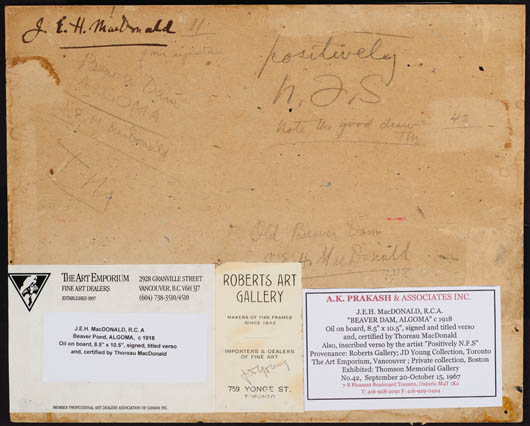 J. E. H. MacDonald 11
Beaver Dam
ALGOMA
J. E. H. MacDonald
T M
positively
N. F. S
Note the good drawing
TM
42
Old Beaver Dam
J. E. H. MacDonald
1918
THE ART EMPORIUM
FINE ART DEALERS
ESTABLISHED 1897
2928 GRANVILLE STREET
VANCOUVER, B.C. V6H 3J7
(604) 738-3510/4510
J.E.H. MacDONALD, R.C. A
Beaver Pond, ALGOMA, c 1918
Oil on board, 8.5" x 10.5", signed, titled verso
and, certified by Thoreau MacDonald
MEMBER PROFESSIONAL ART DEALERS ASSOCIATION OF CANADA INC.
ROBERTS ART
GALLERY
MAKERS OF FINE FRAMES
SINCE 1842
IMPORTERS & DEALERS
OF FINE ART
JD Young
759 YONGE ST.
TORONTO
A.K. PRAKASH & ASSOCIATES INC.
J.E.H. MacDONALD, R.C.A.
"BEAVER DAM, ALGOMA" c 1918
Oil on board, 8.5" x 10.5", signed and titled verso
and, certified by Thoreau MacDonald
Also, inscribed verso by the artist "Positively N.F.S"
Provenance: Roberts Gallery; JD Young Collection, Toronto
The Art Emporium, Vancouver ; Private collection, Boston
Exhibited: Thomson Memorial Gallery
No.42, September 20-October 15, 1967
7-B Pleasant Boulevard Toronto, Ontario M4T 1K2
T: 416-928-2091 F: 416-929-0404